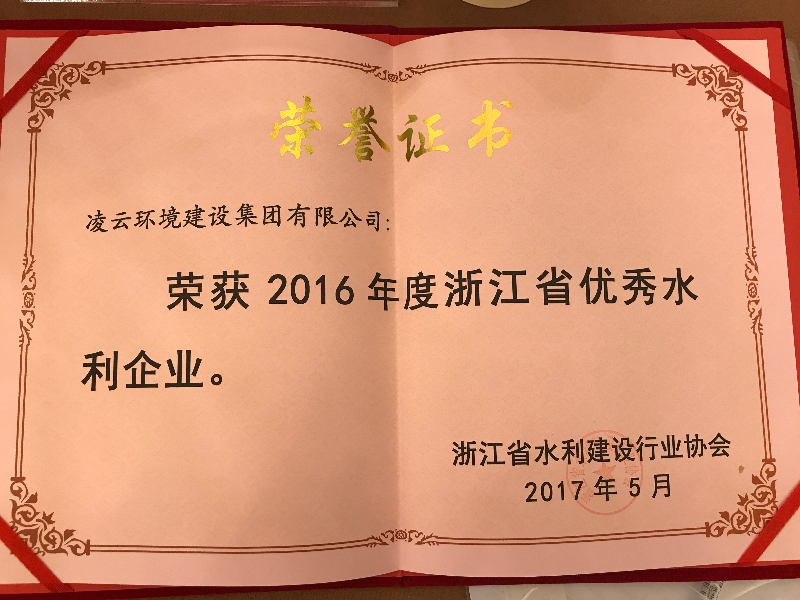 荣誉证书
凌云环境建设集团有限公司:
荣获2016年度浙江省优秀水
利企业。
浙江省水利建设行业协会
2017年5月